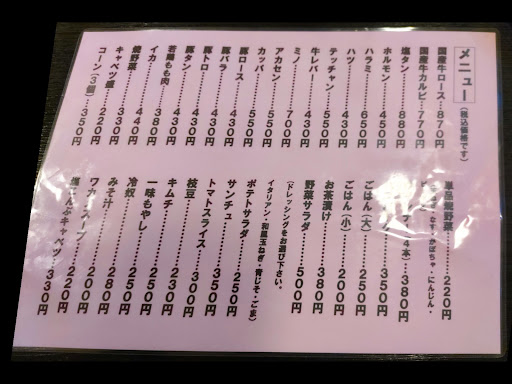 メニュー(税込価格です)
国産牛ロース…870円
国産牛カルビ…770円
塩タン…880円
ホルモン…450円
ハラミ…650円
ハツ…430円
テッチャン…550円
牛レバー…430円
ミノ…700円
アカセン…550円
カッパ…550円
豚ロース…430円
豚バラ…430円
豚トロ…430円
豚タン…430円
若鶏もも肉…430円
イカ…380円
焼野菜…440円
キャベツ盛…330円
コーン(3個)…350円
単品焼野菜…220円
なす・かぼちゃ・にんじん・
(4本)…380円
350円
ごはん(大)…250円
ごはん(小)…200円
お茶漬け…380円
野菜サラダ…500円
(ドレッシングをお選び下さい。
イタリアン・和風玉ねぎ・青じそ・ごま)
ポテトサラダ…350円
サンチュ…250円
トマトスライス…300円
枝豆…300円
キムチ…230円
一味もやし…250円
冷奴…250円
みそ汁…280円
ワカメスープ…200円
塩こんぶキャベツ…330円